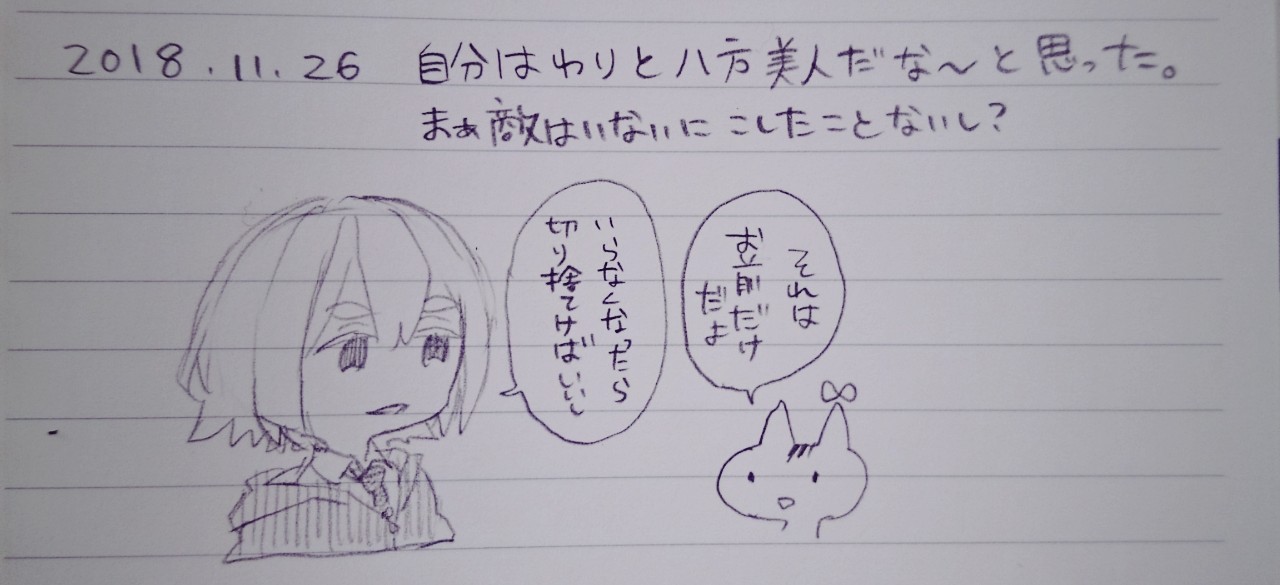 2018.11.26 自分はわりと八方美人だな〜と思った。
まぁ敵はいないにこしたことないし?
いらなくなったら
切り捨てけばいいし
それは
お前だけ
だよ